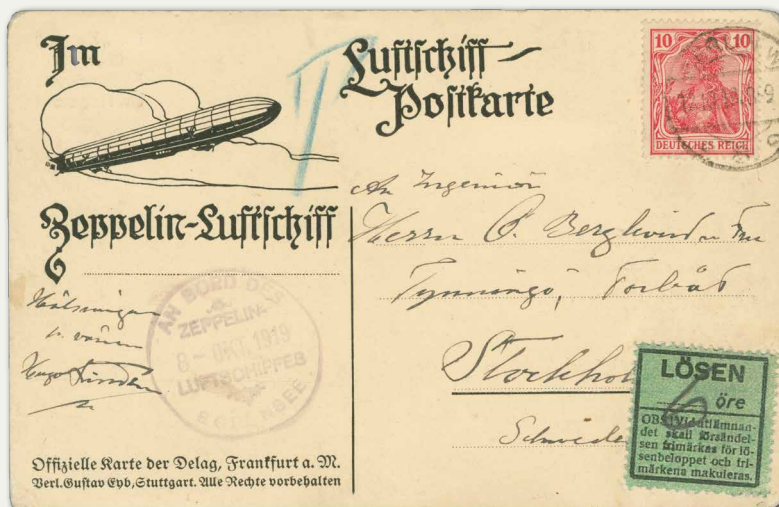 Im
Luftschiff-
Postkarte
Zeppelin-Luftschiff
10 10
DEUTSCHES REICH
An Ingeniör
Herrn O. Berglind u Fru
Tynningö,
Stockhol
Schwede
Hälsningar
Hugo
AN BORD DES
ZEPPELIN-
8-OKT.1919
LUFTSCHIFFES
BODENSEE
LÖSEN
öre
OBS! Vid utlämnan-
det skall försändel-
sen frimärkas för lö-
senbeloppet och fri-
märkena makuleras.
Offizielle Karte der Delag, Frankfurt a. M.
Verl. Gustav Eyb, Stuttgart. Alle Rechte vorbehalten